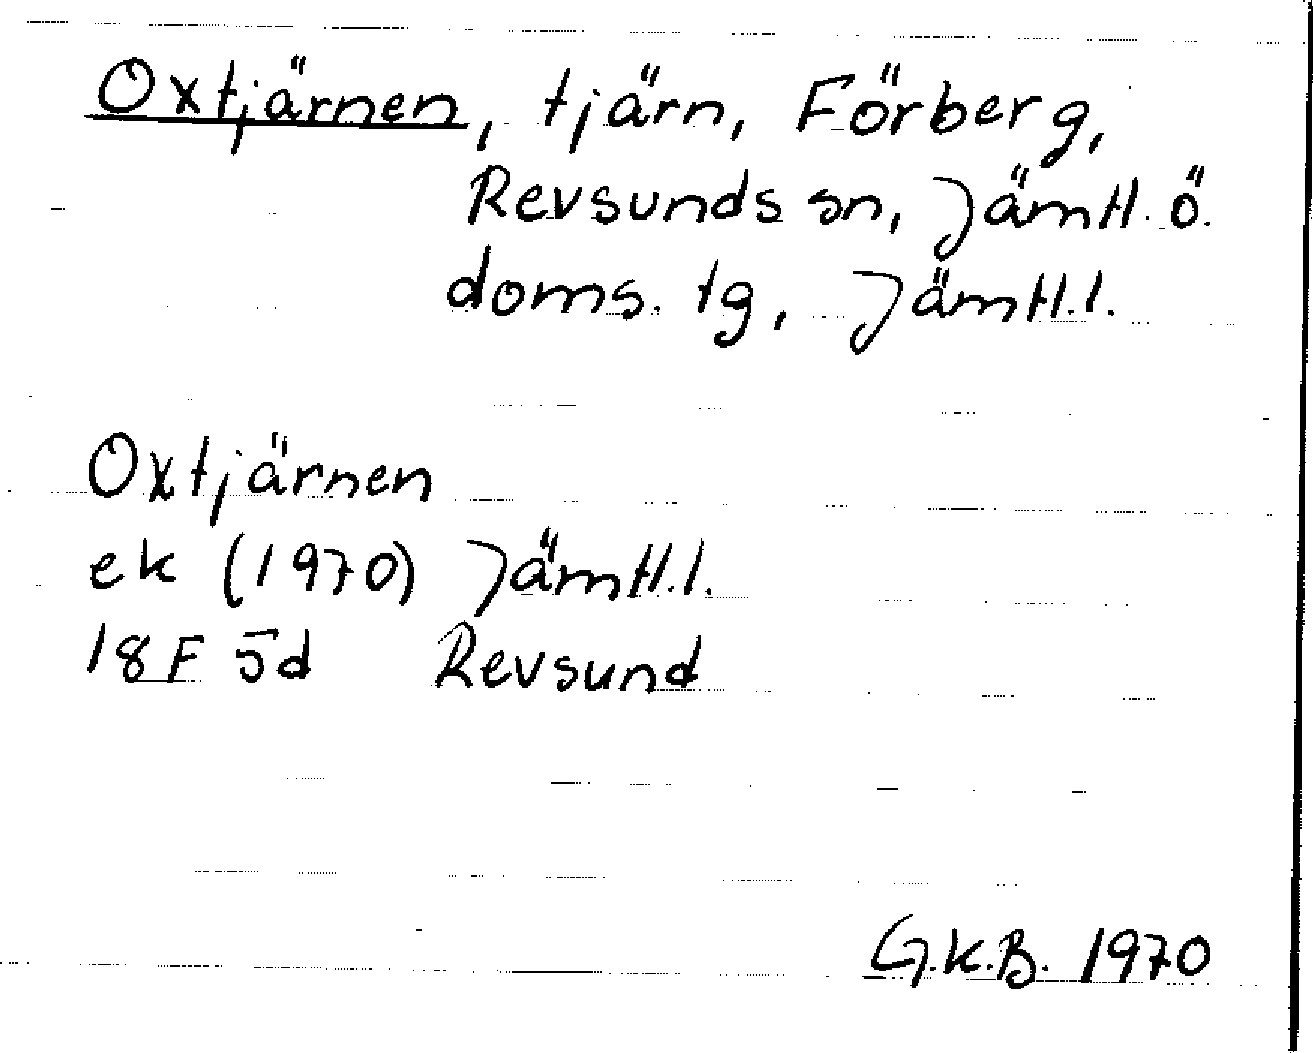 Oxtjärnen, tjärn, Förberg,
Revsunds sn, Jämtl. ö.
doms. tg, Jämtl.l.
Oxtjärnen
ek (1970) Jämtl.l.
18F 5d Revsund
G.K.B. 1970